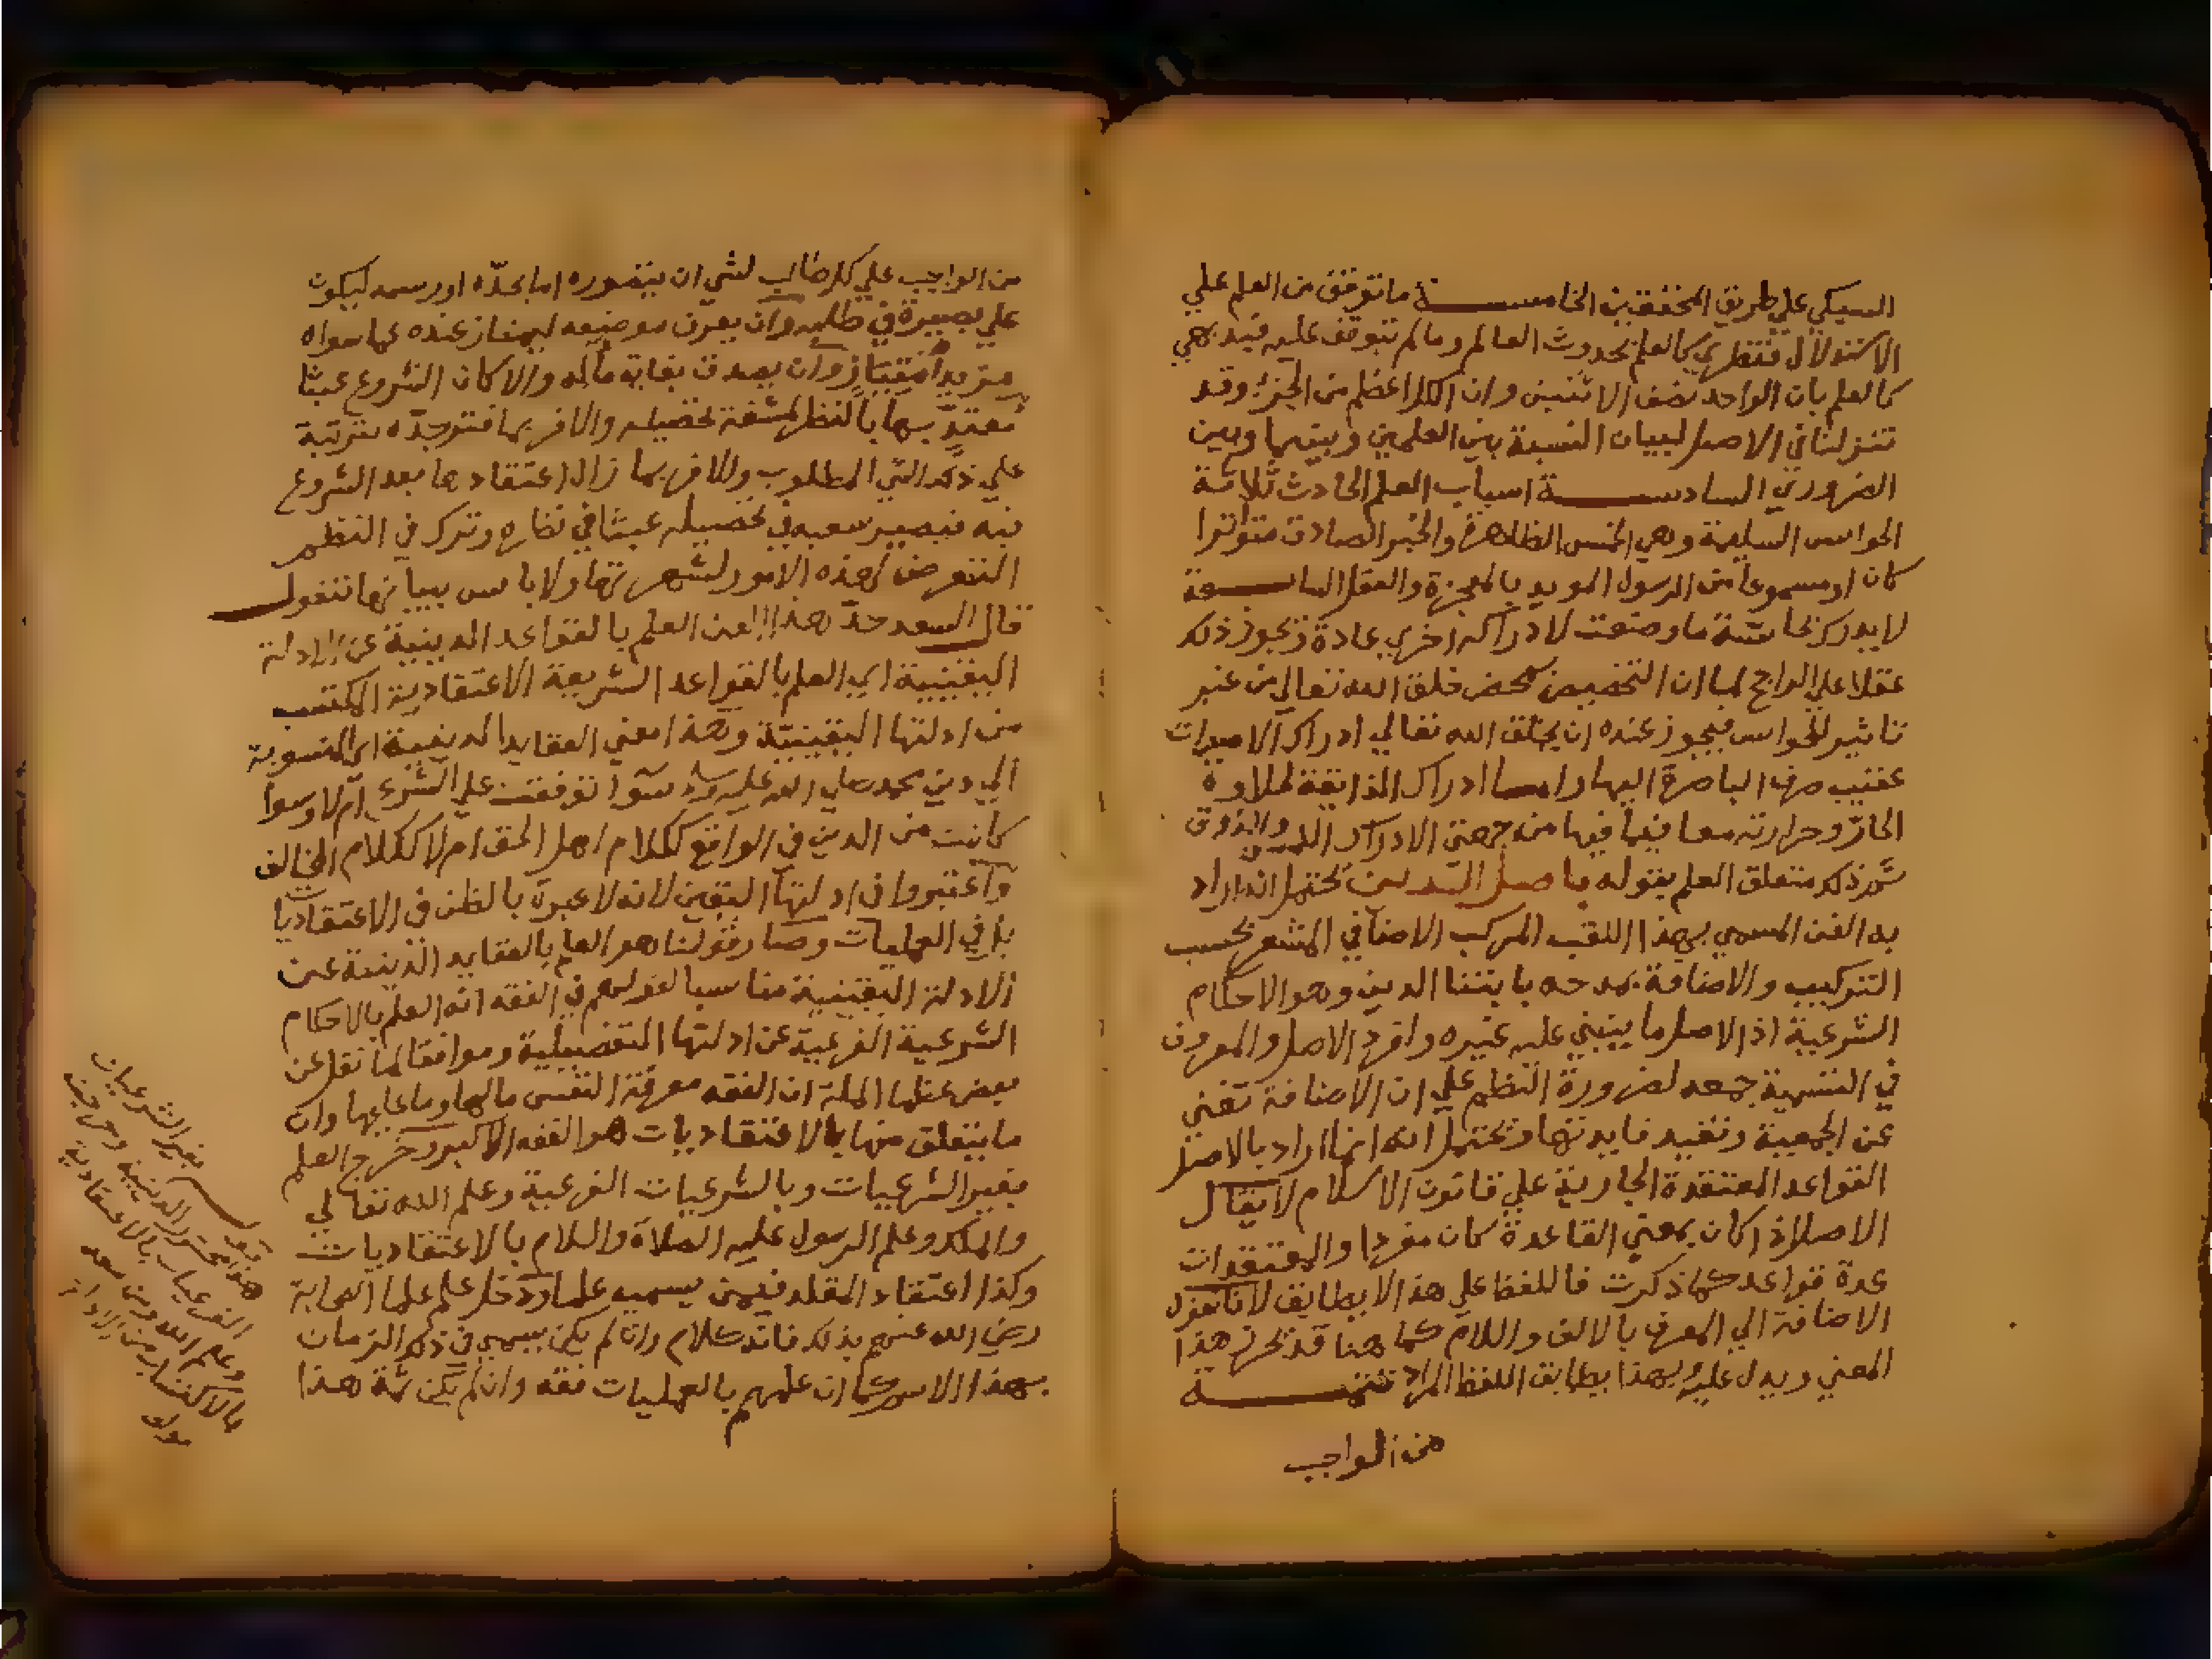 السبكي علي طريق المحققين الخامسة ما توقف من العلم علي
الاستدلال فنظري كالعلم بحدوث العالم وما لم يتوقف عليه فبديهي
كالعلم بان الواحد نصف الاثنين وان الكل اعظم من الجزء وقد
تنزلنا في الاصل لبيان النسبة بين العلمين وبينهما وبين
الضروري السادسة اسباب العلم الحادث ثلاثة
الحواس السليمة وهي الخمس الظاهرة والخبر الصادق متواترا
كان او مسموعا من الرسول المويد بالمعجزة والعقل السابعة
لا يدرك بحاسة ما وضعت لادراكه اخري عادة ويجوز ذلك
عقلا علي الراجح لما ان التخصيص بمحض خلق الله تعالي من غير
تاثير للحواس فيجوز عنده ان يخلق الله تعالي ادراك الاصوات
عقيب صرف الباصرة اليها واما ادراك الذائقة لحلاوة
الحار وحرارته معا فيما فيها من جهتي الادراك اللمس والذوق
ثم ذكر متعلق العلم بقوله باصل الدين يحتمل انه اراد
به الفن المسمي بهذا اللقب المركب الاضافي المشعر بحسب
التركيب والاضافة بمدحه بابتنا الدين وهو الاحكام
الشرعية اذ الاصل ما ينبني عليه غيره وافرد الاصل والمعروف
في التسمية جمعه لضرورة النظم علي ان الاضافة تغني
عن الجمعية وتفيد فايدتها ويحتمل انه انما اراد بالاصل
القواعد المعتقدة الجارية علي قانون الاسلام لا يقال
الاصل اذا كان بمعني القاعدة كان مفردا والمعتقدات
عدة قواعد كما ذكرت فاللفظ علي هذا لا يطابق لانا نقول
الاضافة الي المعرف بالالف واللام كما هنا قد تحرز هذا
المعني ويدل عليه فبهذا يطابق اللفظ المراد تتمة
من الواجب
من الواجب علي كل طالب لشي ان يتصوره اما بحده او رسمه ليكون
علي بصيرة في طلبه وان يعرف موضوعه ليمتاز عنده عما سواه
مزيد امتياز وان يصدق بغاية ما له والا كان الشروع عبثا
معتد بها بالنظر لمشقة تحصيله والا فربما فتر جده مترتبة
علي ذلك الشي المطلوب والا فربما زال اعتقادها بعد الشروع
فيه فيصير سعيه في تحصيله عبثا في نظره وترك في النظم
التعرض لهذه الامور لشهرتها ولا باس ببيانها فنقول
قال السعد حد هذا الفن العلم بالقواعد الدينية عن الادلة
اليقينية اي العلم بالقواعد الشرعية الاعتقادية المكتسب
من ادلتها اليقينية وهذا معني العقايد الدينية اي المنسوبة
الي دين محمد صلي الله عليه وسلم سوا توقفت علي الشرع ام لا وسوا
كانت من الدين في الواقع ككلام اهل الحق ام لا ككلام المخالف
واعتبروا في ادلتها اليقين لانه لا عبرة بالظن في الاعتقاديات
بل في العمليات وصار قولنا هو العلم بالعقايد الدينية عن
الادلة اليقينية مناسبا لقولهم في الفقه انه العلم بالاحكام
الشرعية الفرعية عن ادلتها التفصيلية وموافقا لما نقل عن
بعض عظما الملة ان الفقه معرفة النفس ما لها وما عليها وان
ما يتعلق منها بالاعتقاديات هو الفقه الاكبر وخرج العلم
بغير الشرعيات وبالشرعيات الفرعية وعلم الله تعالي
والملك وعلم الرسول عليه الصلاة والسلام بالاعتقاديات
وكذا اعتقاد المقلد فيمن يسميه علما ودخل علم علما الصحابة
رضي الله عنهم بذلك فانه كلام وان لم يكن يسمي في ذلك الزمان
بهذا الاسم كما ان علمهم بالعمليات فقه وان لم يكن ثمة هذا
بغير الشرعيات
الدينية وخرجت
الفرعيات بالاعتقادية
وعلم الله ومن معه
بالاكتساب من الادلة